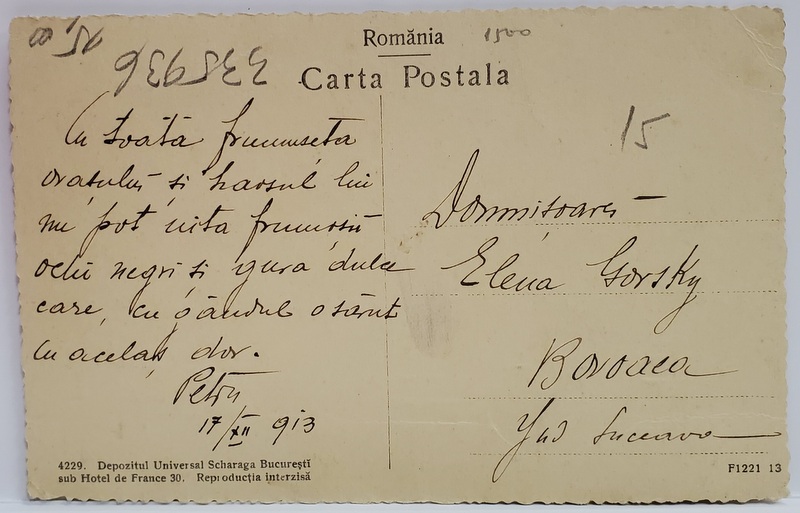 România
1500
Carta Postala
15
Cu toată frumuseța
orașului și haosul lui
nu pot uita frumoșii
ochi negri și gura dulce
care, cu gândul o sărut
cu acelaș dor.
Petru
17/XII 913
Domnișoarei
Elena Gorsky
Boroaea
Jud Suceava
4229. Depozitul Universal Scharaga Bucureștĭ
sub Hotel de France 30. Reproducția interzisă
F1221 13